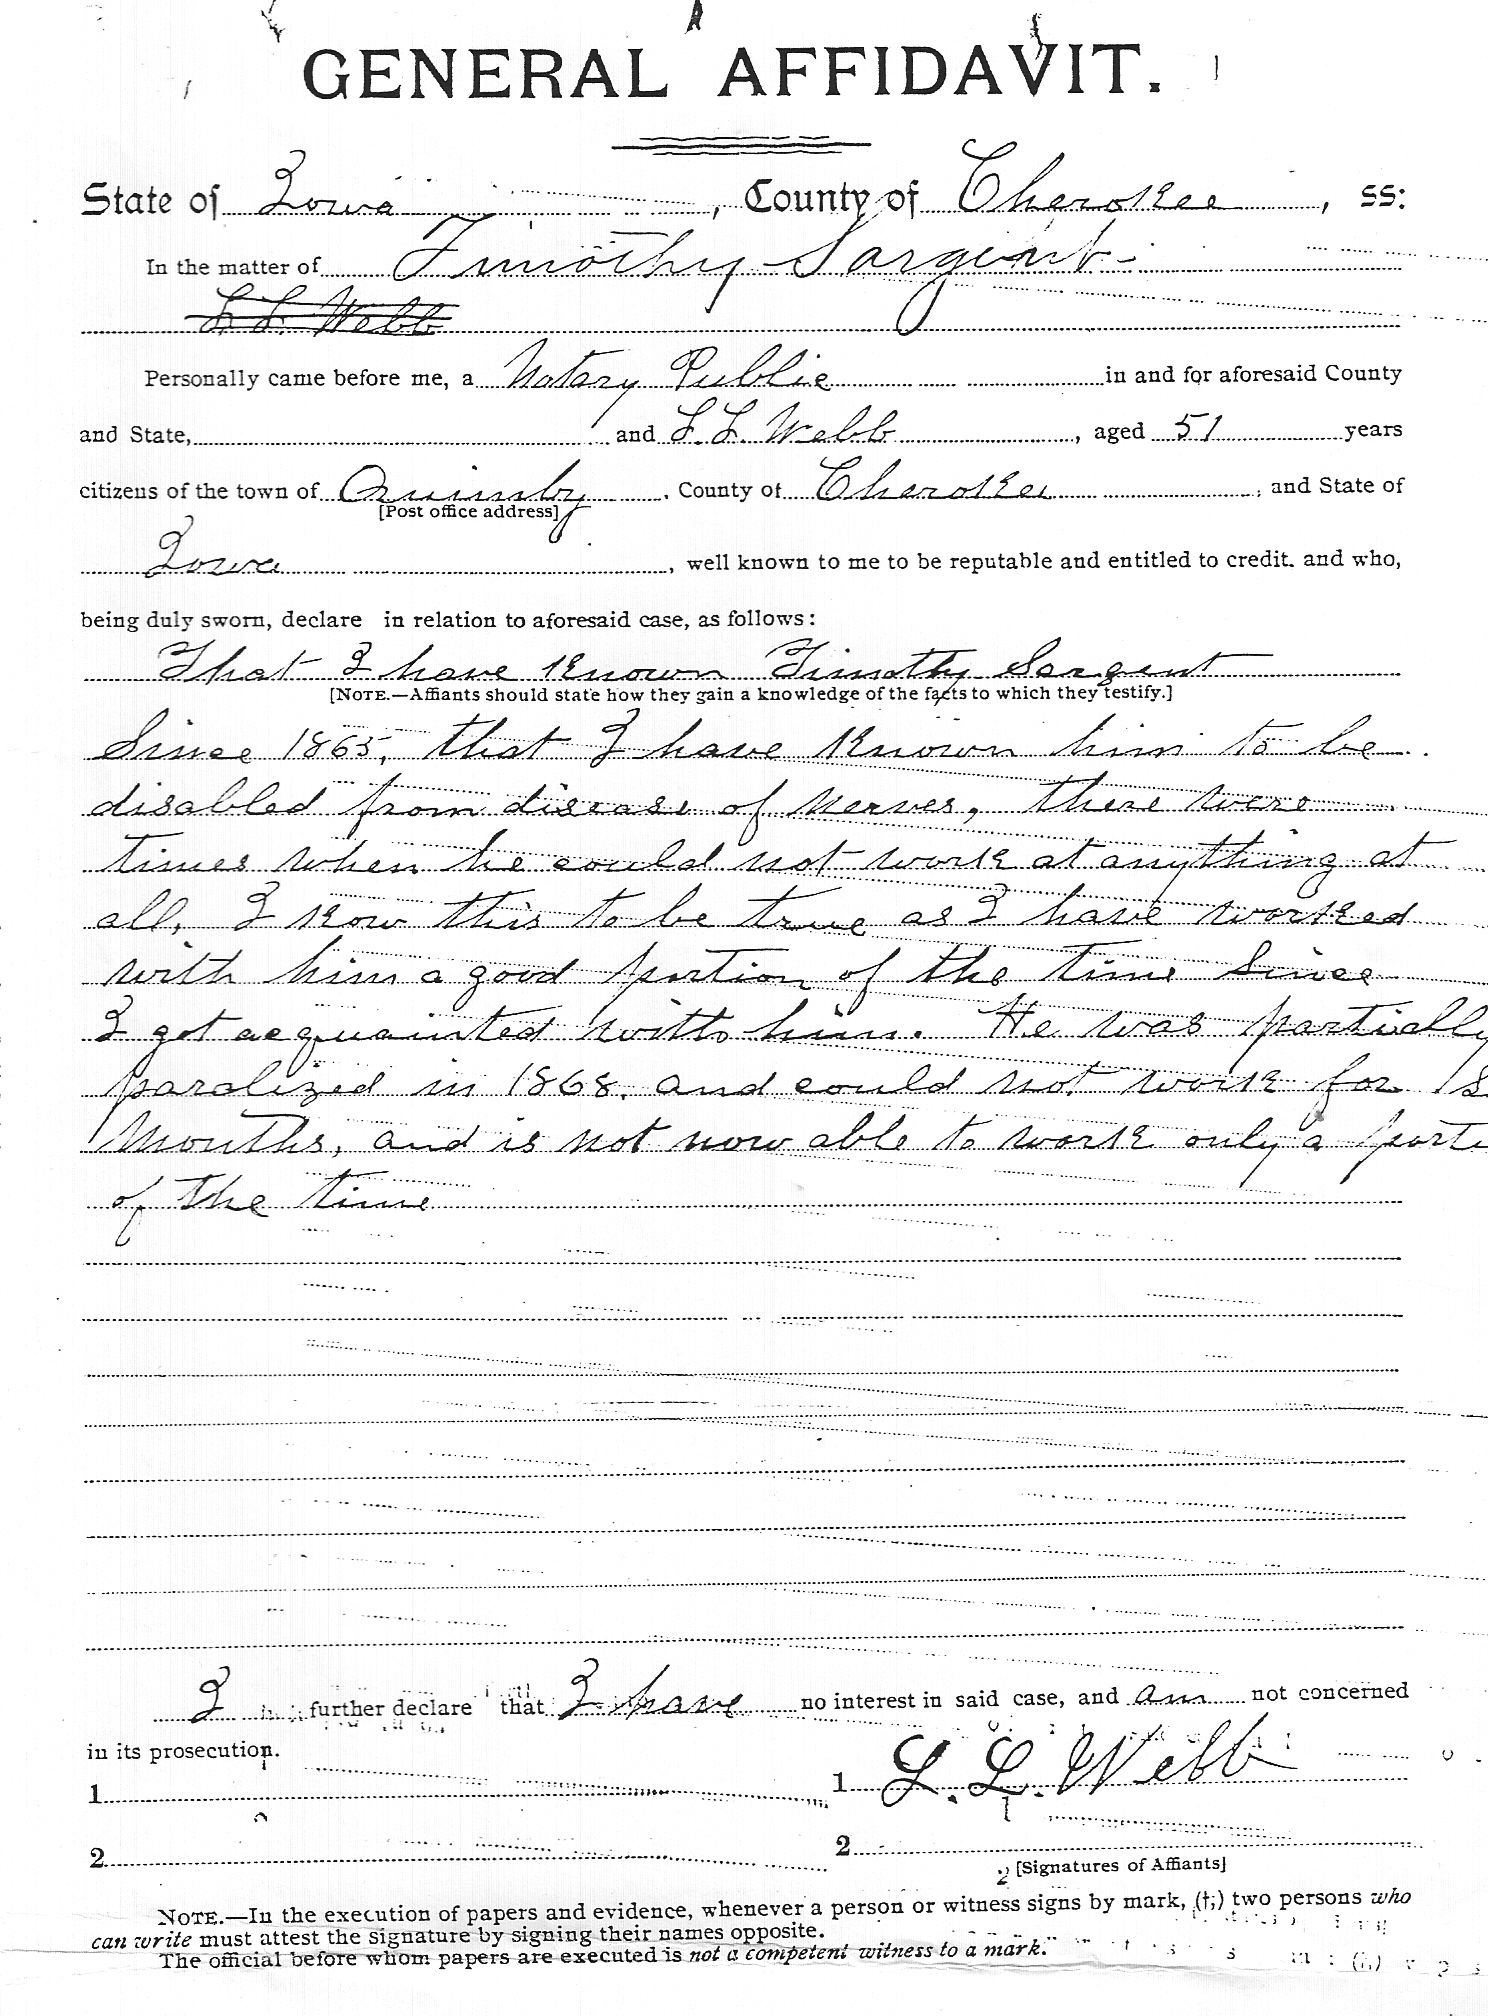 GENERAL AFFIDAVIT.
State of Iowa, County of Cherokee, ss:
In the matter of Timothy Sargent
L. L. Webb
Personally came before me, a Notary Public in and for aforesaid County
and State, and L. L. Webb, aged 51 years
citizens of the town of Quimby, County of Cherokee, and State of
[Post office address]
Iowa, well known to me to be reputable and entitled to credit. and who,
being duly sworn, declare in relation to aforesaid case, as follows:
That I have known Timothy Sargent
[NOTE.—Affiants should state how they gain a knowledge of the facts to which they testify.]
Since 1865, that I have known him to be
disabled from disease of nerves, there were
times when he could not work at anything at
all, I know this to be true as I have worked
with him a good portion of the time since
I got acquainted with him. He was partially
paralized in 1868. and could not work for
Months, and is not now able to work only a part
of the time
I further declare that I have no interest in said case, and am not concerned
in its prosecution.
1 1 L. L. Webb
2 2
[Signatures of Affiants]
NOTE.—In the execution of papers and evidence, whenever a person or witness signs by mark, (†;) two persons who
can write must attest the signature by signing their names opposite.
The official before whom papers are executed is not a competent witness to a mark.